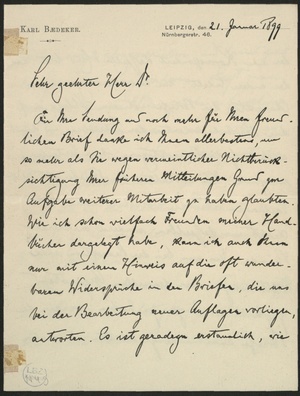 KARL BÆDEKER.
LEIPZIG, den 21. Januar 1899
Nürnbergerstr. 46.
Sehr geehrter Herr Dr.
Für Ihre Sendung und noch mehr für Ihren freund-
lichen Brief danke ich Ihnen allerbestens, um
so mehr als Sie wegen vermeintlicher Nichtberück-
sichtigung Ihrer früheren Mitteilungen Grund zur
Aufgabe weiterer Mitarbeit zu haben glaubten.
Wie ich schon vielfach Freunden meiner Hand-
bücher dargelegt habe, kann ich auch Ihnen
nur mit einem Hinweis auf die oft wunder-
baren Widersprüche in den Briefen, die uns
bei der Bearbeitung neuer Auflagen vorliegen,
antworten. Es ist geradezu erstaunlich, wie